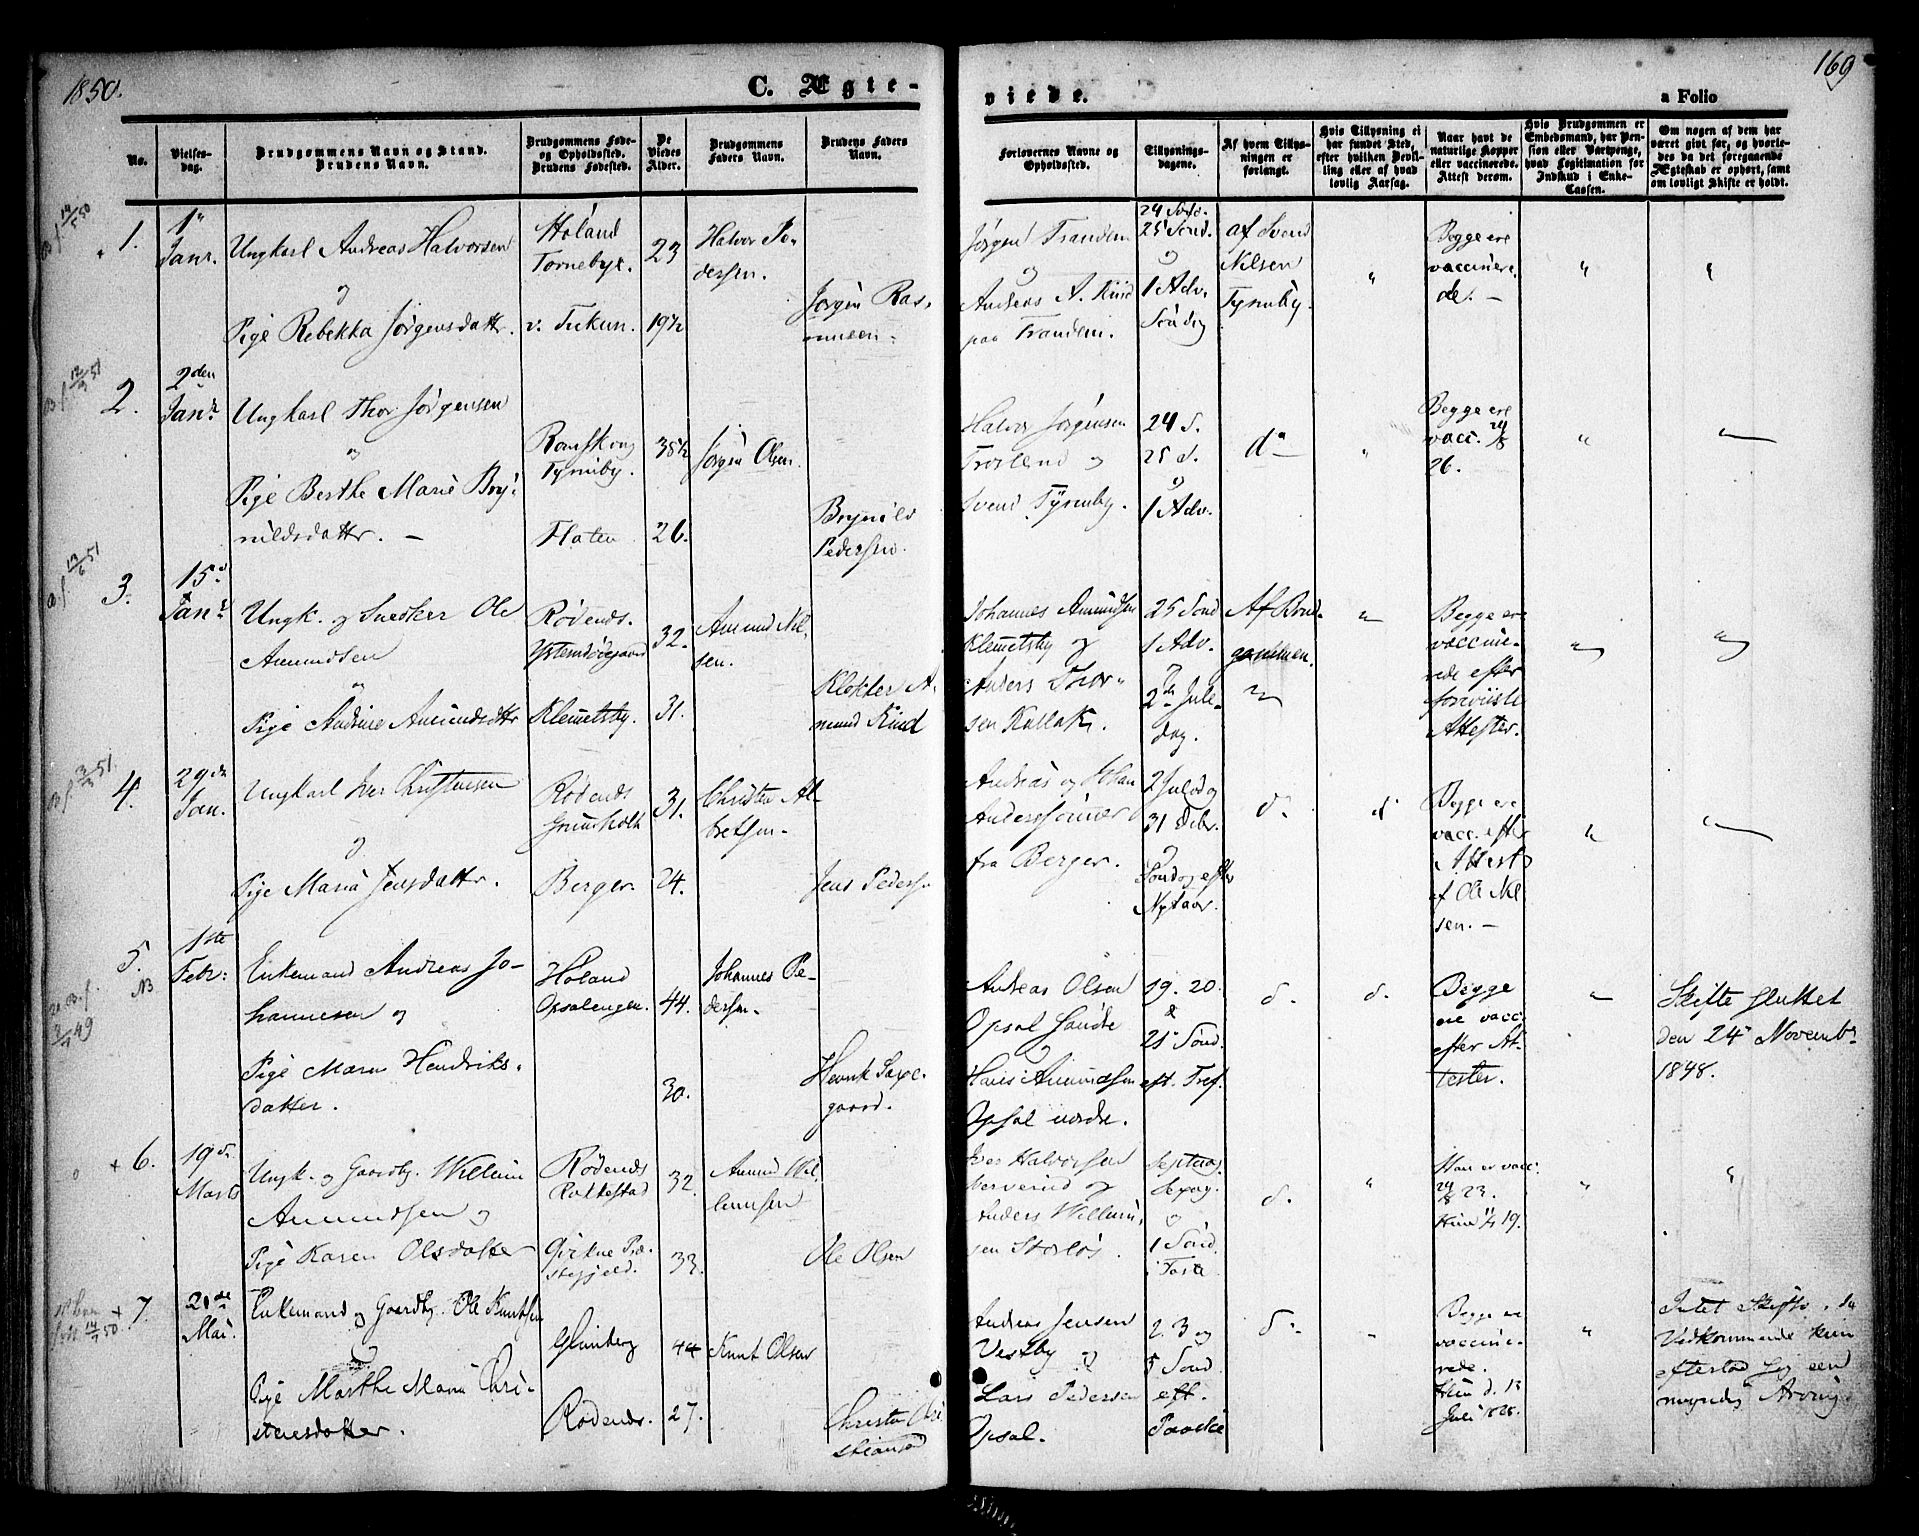 1850.
C. Ægte-
viede.
169
a Folio
No.
Vielses-
dag.
Brudgommens Navn og Stand.
Brudens Navn.
Brudgommens Føde-
og Opholdssted.
Brudens Fødested.
De
Viedes
Alder.
Brudgommens
Faders Navn.
Brudens Faders
Navn.
Forlovernes Navne og
Opholdssted.
Tillysnings-
dagene.
Af hvem Tillys-
ningen er
forlangt.
Hvis Tillysning ei
har fundet Sted,
efter hvilken Bevil-
ling eller af hvad
lovlig Aarsag.
Naar havt de
naturlige Kopper
eller vaccinerede.
Attest derom.
Hvis Brudgommen er
Embedsmand, har Pen-
sion eller Vartpenge,
hvad Legitimation for
Indskud i Enke-
Cassen.
Om nogen af dem har
været gift før, og hvorle-
des da det foregaaende
Ægteskab er ophørt, samt
om lovligt Skifte er holdt.
1.
1"
Janr.
Ungkarl Andreas Halvorsen
og
Pige Rebekka Jørgensdattr.
Høland
Tornebye.
23
19½
Halvor Pe-
dersen.
Jørgen Ras-
musen.
Jørgen Trandem
og
Andreas A. Kind
paa Trandem.
25 Sönd.
og
1 Adv.
Söndag
af Svend
Nilsen
Tymeby.
Begge ere
vaccinere-
de. —
2.
2den
Janr
Ungkarl Thor Jørgensen
og
Pige Berthe Marie Bry-
nildsdattr. —
Romskoug
Tymeby.
Flaten
35½
26.
Jørgen Olsen.
Brynild
Pedersen.
Halvor Jørgensen
Trosterud og
Svend Tymeby.
24 S.
25 d.
og
1 Adv.
do
Begge ere
vacc.
26.
3.
15d
Janr
Ungk. og Snedker Ole
Amundsen
og
Pige Andrine Amundsdattr
Rødenæs.
Klemetsby.
32.
31.
Amund Nil-
sen.
Klokker A-
mund Kind
Johannes Amundsen
Klemetsby og
Anders Thor-
sen Kallak.
25 Sönd
1 Adv.
og
2den Jule-
dag.
Af Brud-
gommen.
Begge ere
vaccine-
rede efter
foreviiste
Attester.
4.
29de
Jan.
Ungkarl Iver Christensen
og
Pige Maria Jensdattr.
Rødenæs
Berger.
31.
24.
Christen Al-
bretsen.
Jens Pedersen
Andreas og Johan
Anderssønner
fra Berger.
2 Juledag
31 Decbr.
og
Söndag efter
Nytaar.
d.
Begge ere
vacc. efter
Attest
af Ole Nil
sen. —
5.
NB
1ste
Febr:
Enkemand Andreas Jo-
hannesen og
Pige Maren Hendriks-
datter.
Høland
Opsalengen.
44.
30.
Johannes Pe-
dersen.
Andreas Olsen
Opsal Søndre
og
Hans Amundsen
Opsal nordre.
19. 20.
&
21 Sönd.
eft. Tref.
d.
d.
Begge
ere vacc.
efter At-
tester.
Skifte sluttet
den 24" Novembr
1848.
+ 6.
19de
Marts
Ungk. og Gaardbr. Willum
Amundsen og
Pige Karen Olsdatter
Rødenæs
32.
33.
Amund Wil-
lumsen
Ole Olsen
Iver Halvorsen
og
Anders Willum-
sen
Septuag.
Sexag.
og
1 Sönd.
i Faste
d.
Han er vacc.
23.
Hun 19.
+ 7.
21de
Mai.
Enkemand og Gaardbr. Ole Knutsen
og
Pige Marthe Maria Chri-
stensdatter.
Rødenæs.
44
27.
Knut Olsen
Christen
Andreas Jensen
Vestby og
Lars Pedersen
Opsal.
2. 3 og
5 Sönd.
eft.
Paaske
d.
Begge ere
vaccine-
rede.
Hun d. 13
Juli 1828.
Intet Skifte, da
Vedkommende kun
efterlod sig een
myndig Arving